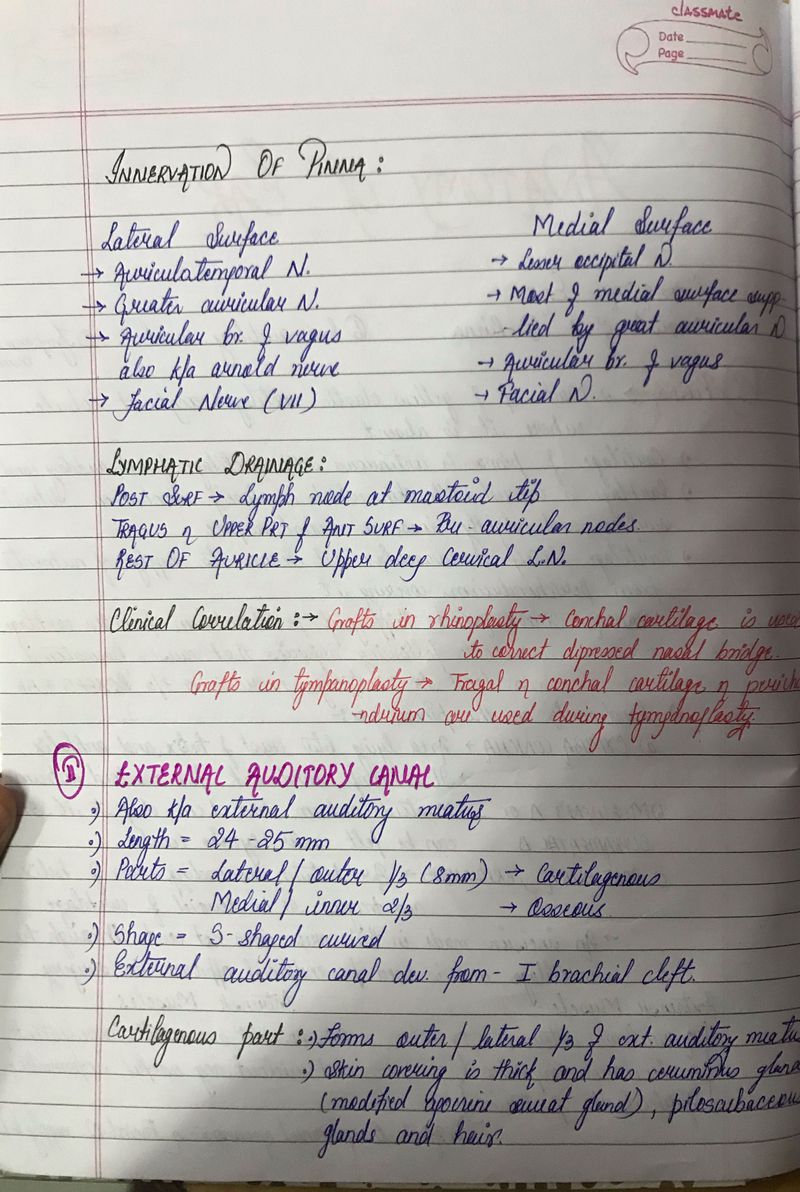 classmate
Date
Page
INNERVATION OF PINNA :
Lateral Surface
→ Auriculotemporal N.
→ Greater auricular N.
→ Auricular br. of vagus
also k/a arnold nerve
→ Facial Nerve (VII)
Medial Surface
→ Lesser occipital N.
→ Most of medial surface supp-
-lied by great auricular N
→ Auricular br. of vagus
→ Facial N.
LYMPHATIC DRAINAGE :
POST SURF → Lymph node at mastoid tip
TRAGUS n UPPER PRT of ANT SURF → Pre-auricular nodes.
REST OF AURICLE → Upper deep Cervical L.N.
Clinical Correlation :→ Grafts in rhinoplasty → Conchal cartilage is used
to correct depressed nasal bridge.
Grafts in tympanoplasty → Tragal n conchal cartilage n pericho
-ndrium are used during tympanoplasty.
II EXTERNAL AUDITORY CANAL
•) Also k/a external auditory meatus
•) Length = 24 - 25 mm
•) Parts = Lateral / outer 1/3 (8mm) → Cartilagenous
Medial / inner 2/3 → Osseous
•) Shape = S-shaped curved
•) External auditory canal dev. from - I brachial cleft.
Cartilagenous part : •) Forms outer / lateral 1/3 of ext. auditory meatus
•) Skin covering is thick and has ceruminous gland
(modified apocrine sweat gland), pilosebaceous
glands and hair.